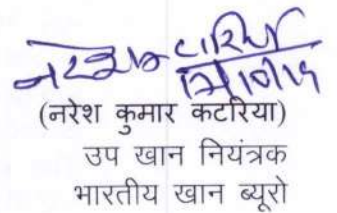 (नरेश कुमार कटारिया)
उप खान नियंत्रक
भारतीय खान ब्यूरो